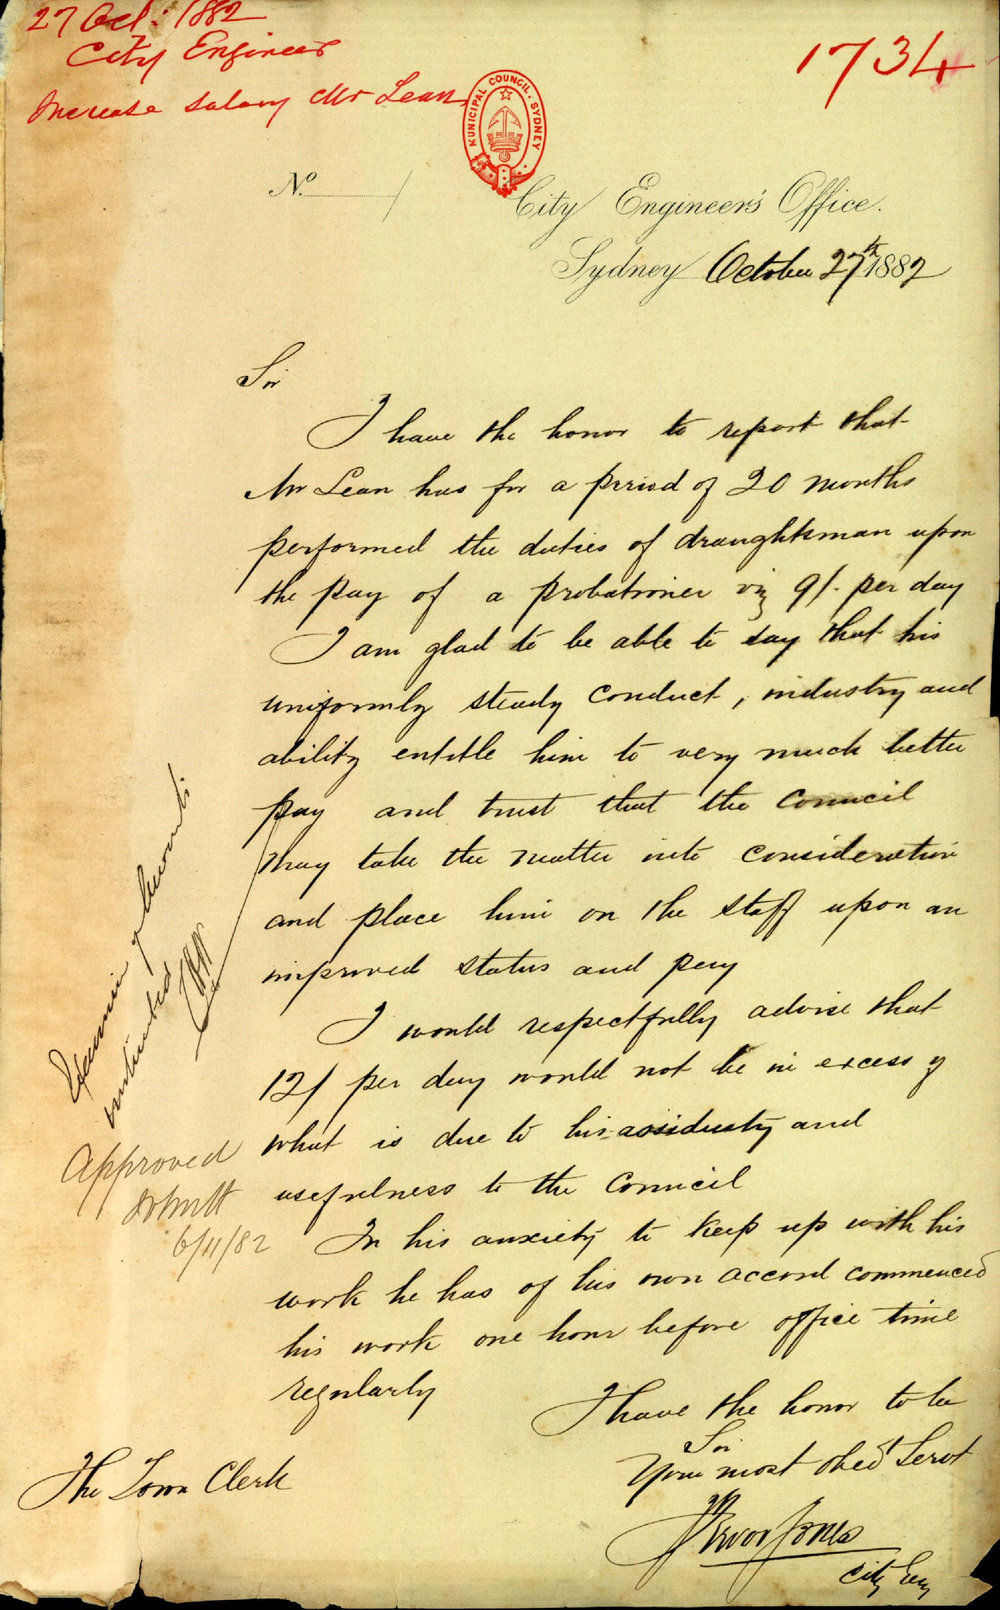 27 Oct: 1882
City Engineer
Increase salary Mr Lean
1734
MUNICIPAL COUNCIL. SYDNEY
No.
City Engineer's Office.
Sydney October 27th 1882
Sir
I have the honor to report that
Mr Lean has for a period of 20 months
performed the duties of draughtsman upon
the pay of a probationer viz 9/- per day
I am glad to be able to say that his
uniformly steady conduct, industry and
ability entitle him to very much better
pay and trust that the Council
may take the matter into consideration
and place him on the staff upon an
improved status and pay
I would respectfully advise that
12/ per day would not be in excess of
what is due to his assiduity and
usefulness to the Council
In his anxiety to keep up with his
work he has of his own accord commenced
his work one hour before office time
regularly
I have the honor to be
Sir
Your most obedt Servt
Trevor Jones
City Eng
The Town Clerk
Approved
6/11/82